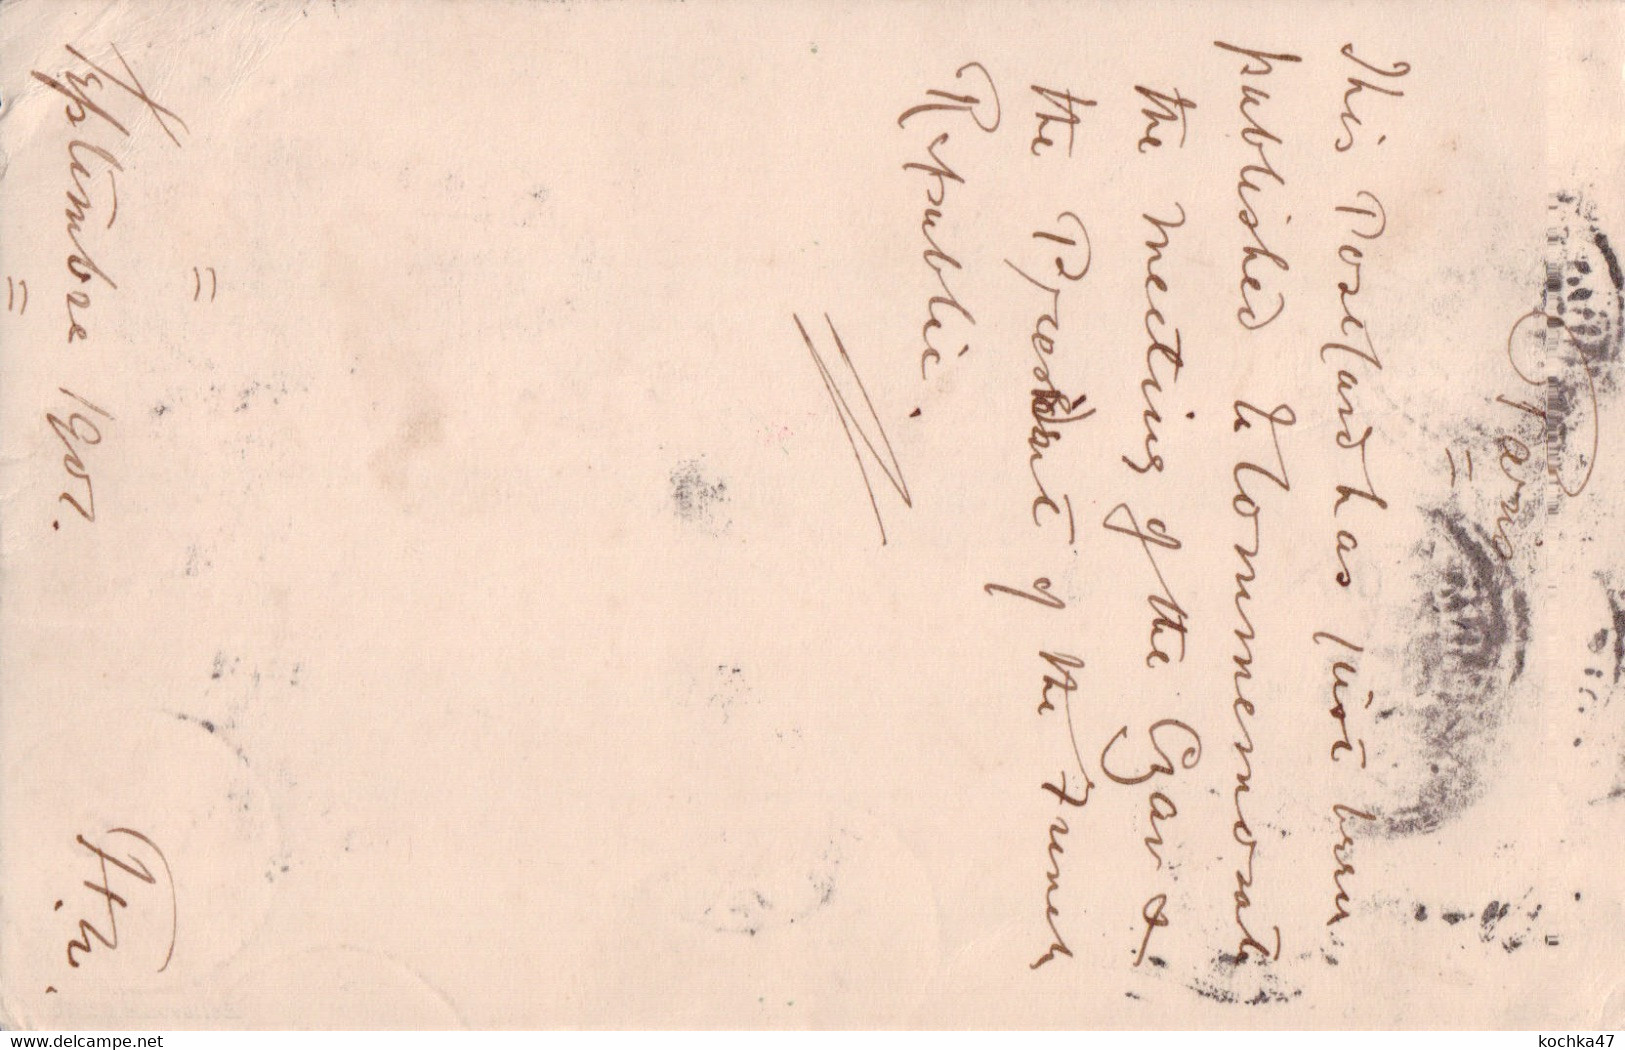 Paris
This Postcard has just been
published to Commemorate
the meeting of the Czar &
the President of the French
Republic.
Septembre 1901.
www.delcampe.net
kochka47